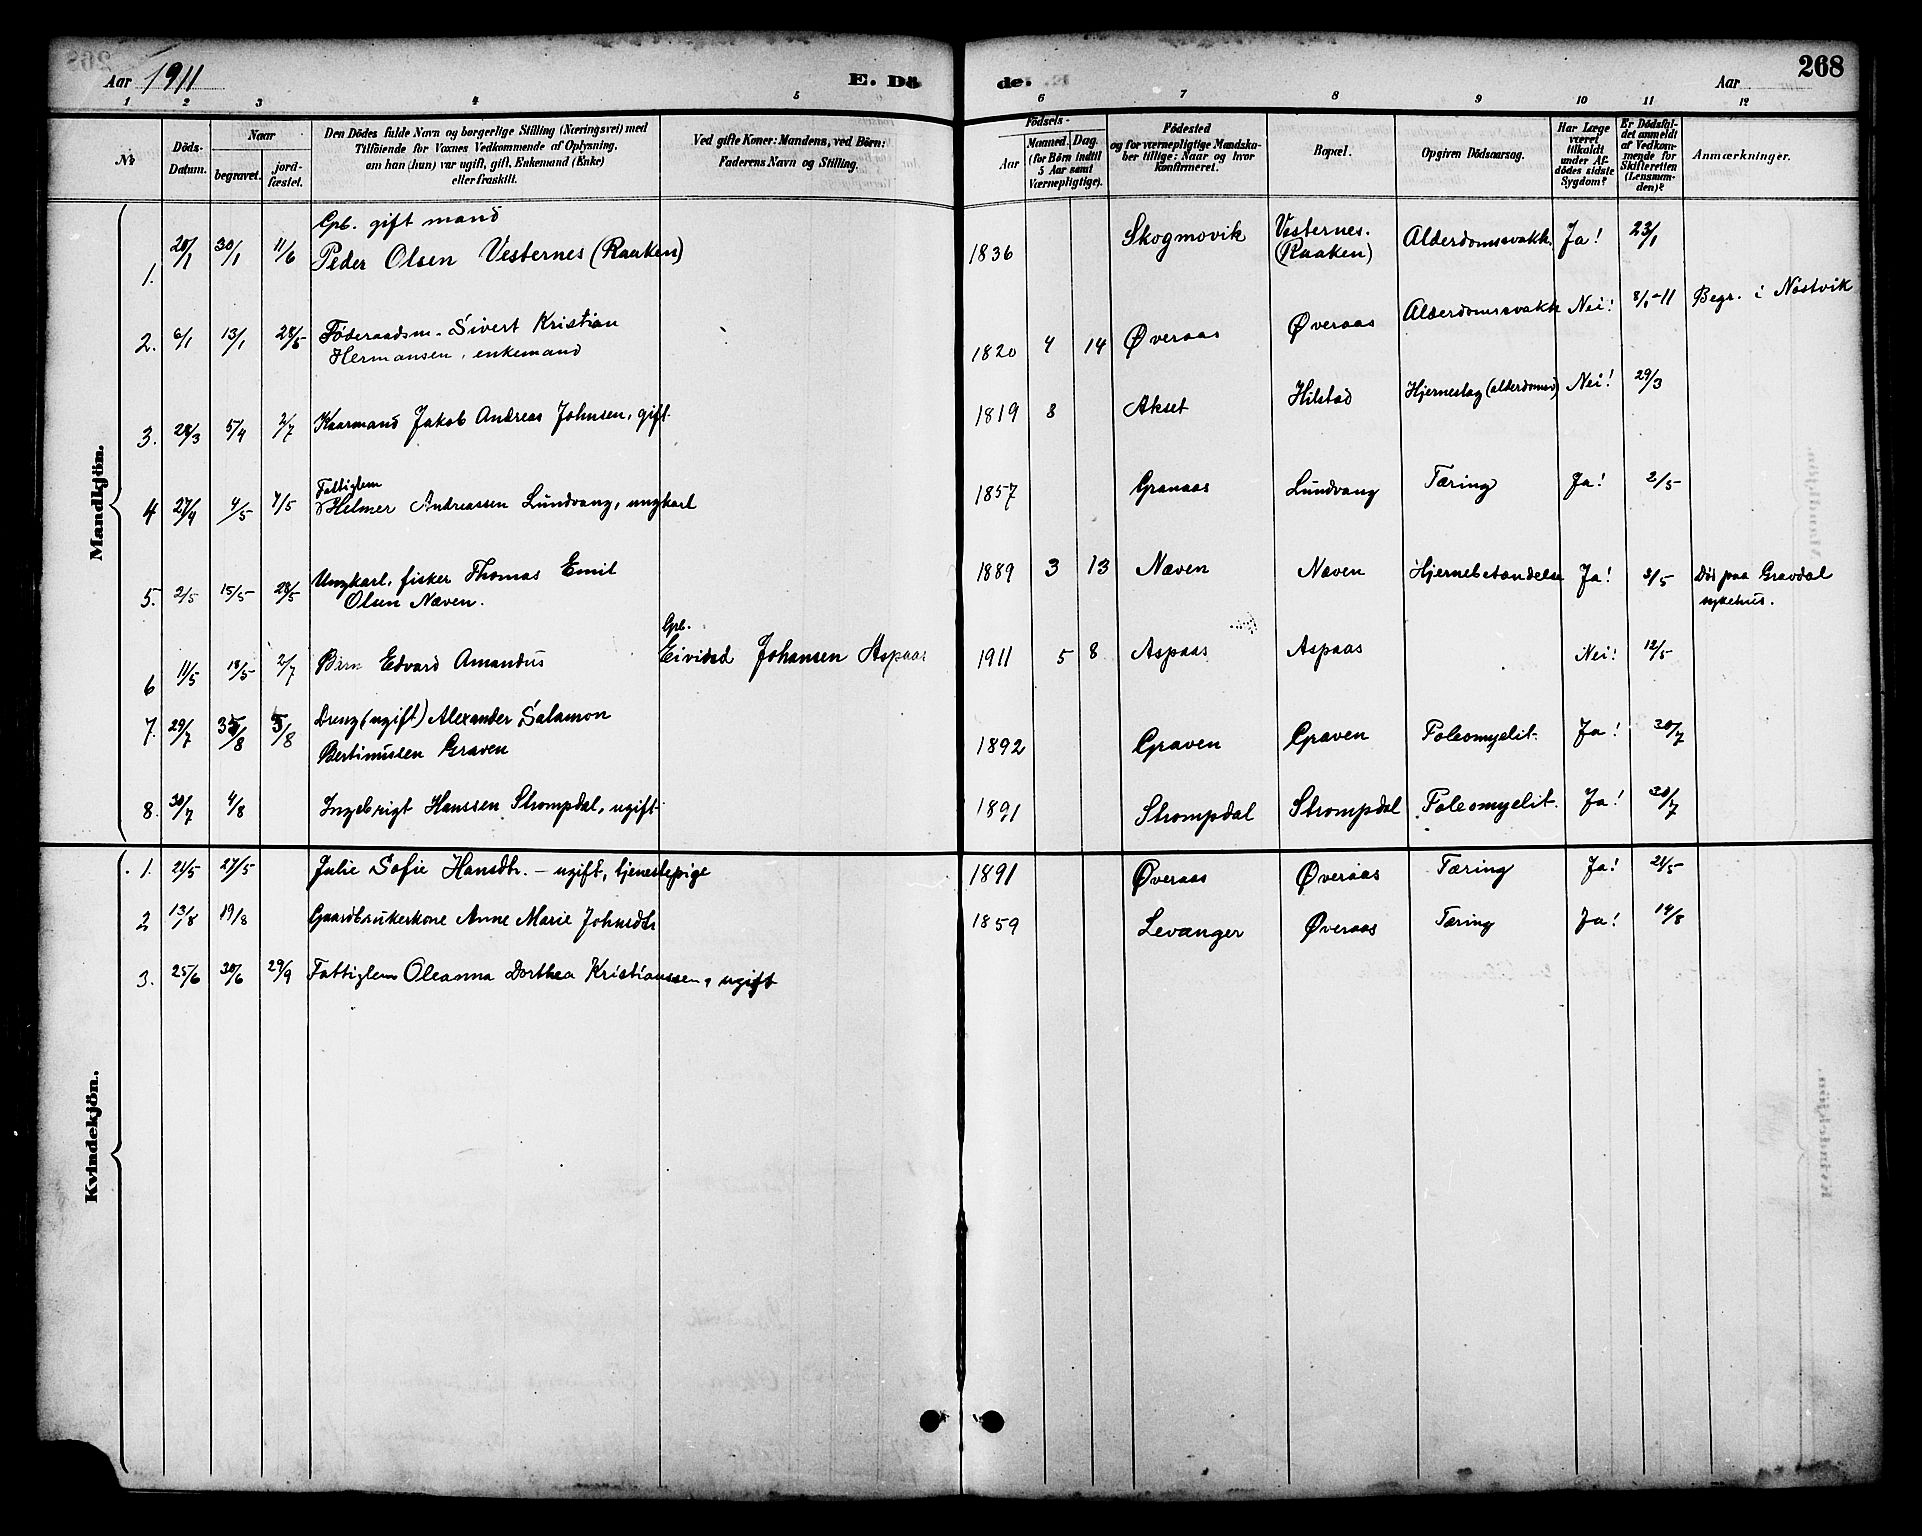 Aar 1911
E. Dö
de.
Aar
268
1 2 3 4 5 6 7 8 9 10 11 12
No
Döds-Datum.
Naar
begravet.
jord-fæstet.
Den Dödes fulde Navn og borgerlige Stilling (Næringsvei) med
Tilföiende for Voxnes Vedkommende af Oplysning,
om han (hun) var ugift, gift, Enkemand (Enke)
eller fraskilt.
Ved gifte Koner: Mandens, ved Börn:
Faderens Navn og Stilling.
Födsels-
Aar
Maaned. Dag.
(for Börn indtil
5 Aar samt
Værnepligtige).
Födested
og for værnepligtige Mandska-
ber tillige: Naar og hvor
konfirmeret.
Bopæl.
Opgiven Dödsaarsag.
Har Læge
været
tilkaldt
under Af-
dödes sidste
Sygdom?
Er Dödsfal-
det anmeldt
af Vedkom-
mende for
Skifteretten
(Lensman-
den)?
Anmærkninger.
Mandkjön.
Gpb. gift mand
1. 20/1 30/1 11/6 Peder Olsen Vesternes (Raaken) 1836 Skogmovik Vesternes. (Raaken) Alderdomssvakh. Ja! 23/1
2. 6/1 13/1 28/5 Föderaadsm. Sivert Kristian
Hermansen, enkemand 1820 4 14 Øveraas Øveraas Alderdomssvakh Nei! 8/1-11 Begr. i Nöstvik
3. 28/3 5/4 2/7 Kaarmand Jakob Andreas Johnsen, gift. 1819 8 Akset Hilstad Hjerneslag (alderdomss) Nei! 29/3
Fattiglem
4 27/4 4/5 7/5 Helmer Andreassen Lundvang, ungkarl 1857 Granaas Lundvang Tæring Ja! 2/5
5. 2/5 15/5 28/5 Ungkarl, fisker Thomas Emil
Olsen Næven. 1889 3 13 Næven Næven Hjernebetændelse Ja! 3/5 Död paa Gravdal
sykehus.
Gpb.
6 11/5 18/5 2/7 Barn Edvard Amandus Eividsd Johansen Aspaas 1911 5 8 Aspaas Aspaas Nei! 12/5
7. 29/7 5/8 5/8 Dreng (ugift) Alexander Salamon
Bertinussen Graven 1892 Graven Graven Poleomyelit. Ja! 30/7
8. 30/7 4/8 Ingebrigt Hanssen Strompdal, ugift 1891 Strompdal Strompdal Poleomyelit. Ja! 30/7
Kvindekjön.
1. 21/5 27/5 Julie Sofie Hansdtr. - ugift, tjenestepige 1891 Øveraas Øveraas Tæring Ja! 21/5
2 13/8 19/8 Gaardbrukerkone Anne Marie Johnsdtr 1859 Levanger Øveraas Tæring Ja! 14/8
3. 25/6 30/6 29/9 Fattiglem Oleanna Dorthea Kristianssen, ugift